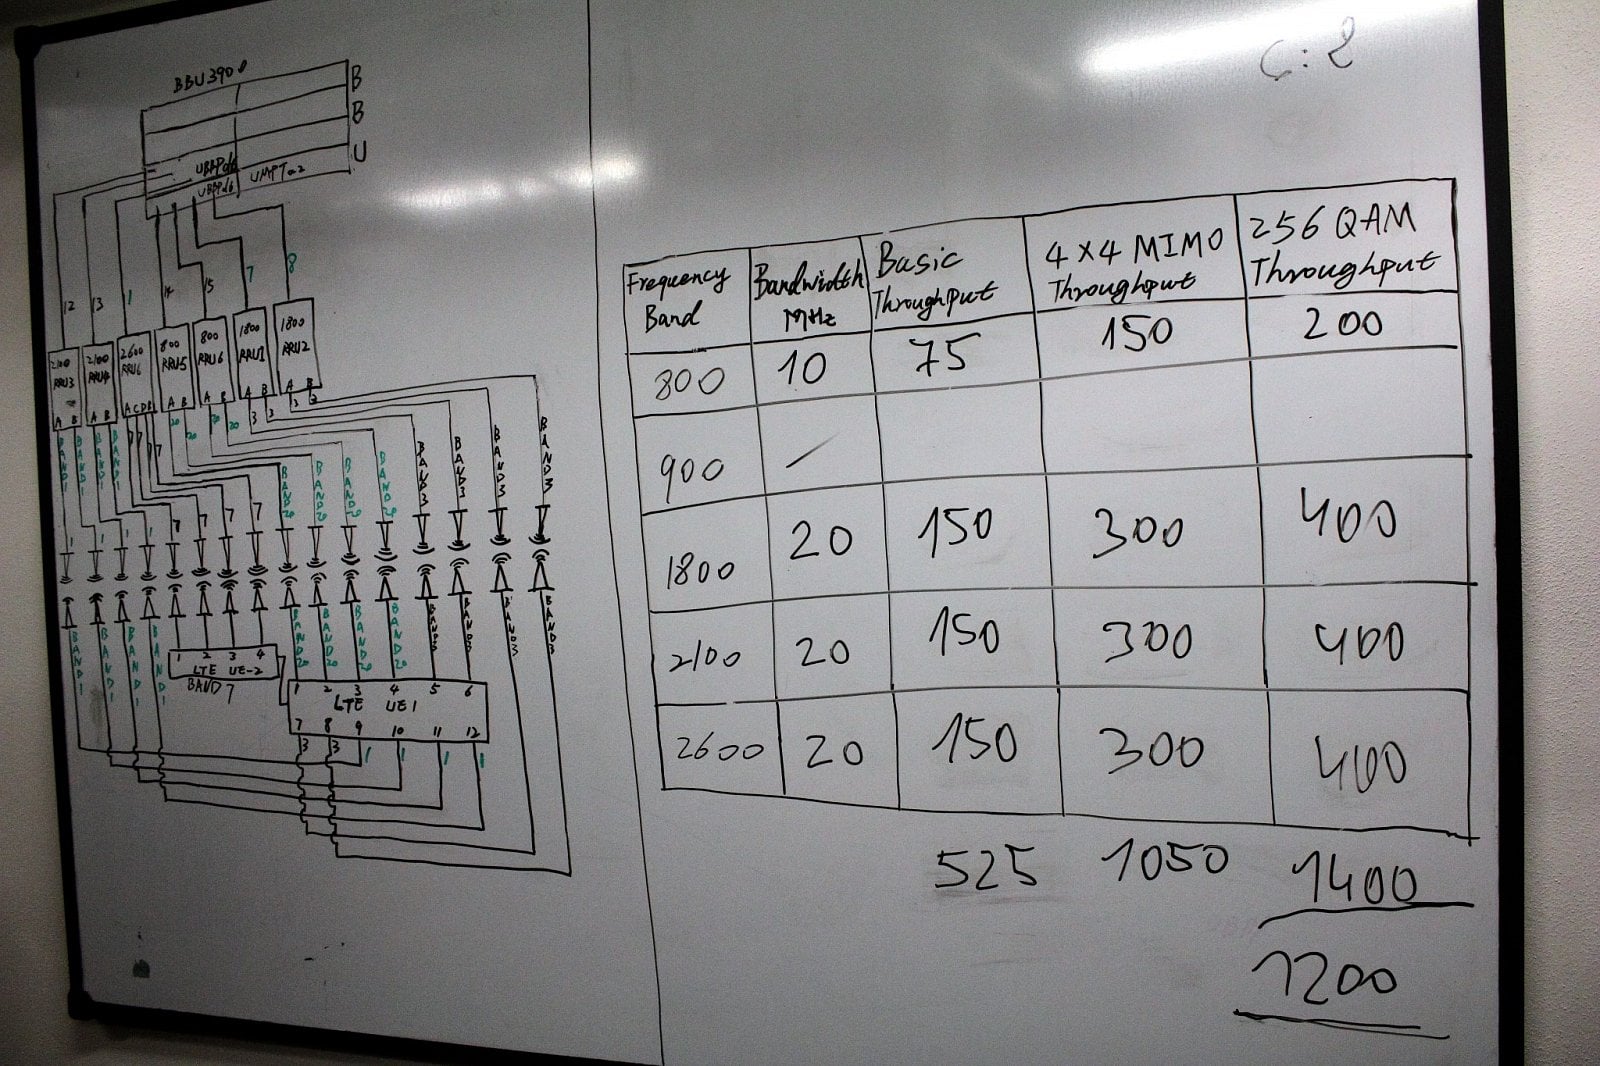 BBU3900
B
B
U
UBBPd6
UBBPd6 UMPTa2
12 13 1 14 15 7 8
2100 RRU3 A B
2100 RRU4 A B
2600 RRU6 A C D B
800 RRU5 A B
800 RRU6 A B
1800 RRU1 A B
1800 RRU2 A B
7 7 7 7 20 20 20 20 3 3 3 3
BAND1 BAND1 BAND1 BAND1
BAND20 BAND20 BAND20 BAND20 BAND3 BAND3 BAND3 BAND3
1 1 1 1 7 7 7 7
BAND1 BAND1 BAND1 BAND1
BAND20 BAND20 BAND20 BAND20 BAND3 BAND3 BAND3 BAND3
1 2 3 4
LTE UE-2
BAND 7
1 2 3 4 5 6
LTE UE1
7 8 9 10 11 12
3 3 1 1 1 1
Frequency Band
Bandwidth MHz
Basic Throughput
4×4 MIMO Throughput
256 QAM Throughput
800 10 75 150 200
900 /
1800 20 150 300 400
2100 20 150 300 400
2600 20 150 300 400
525 1050 1400
1200